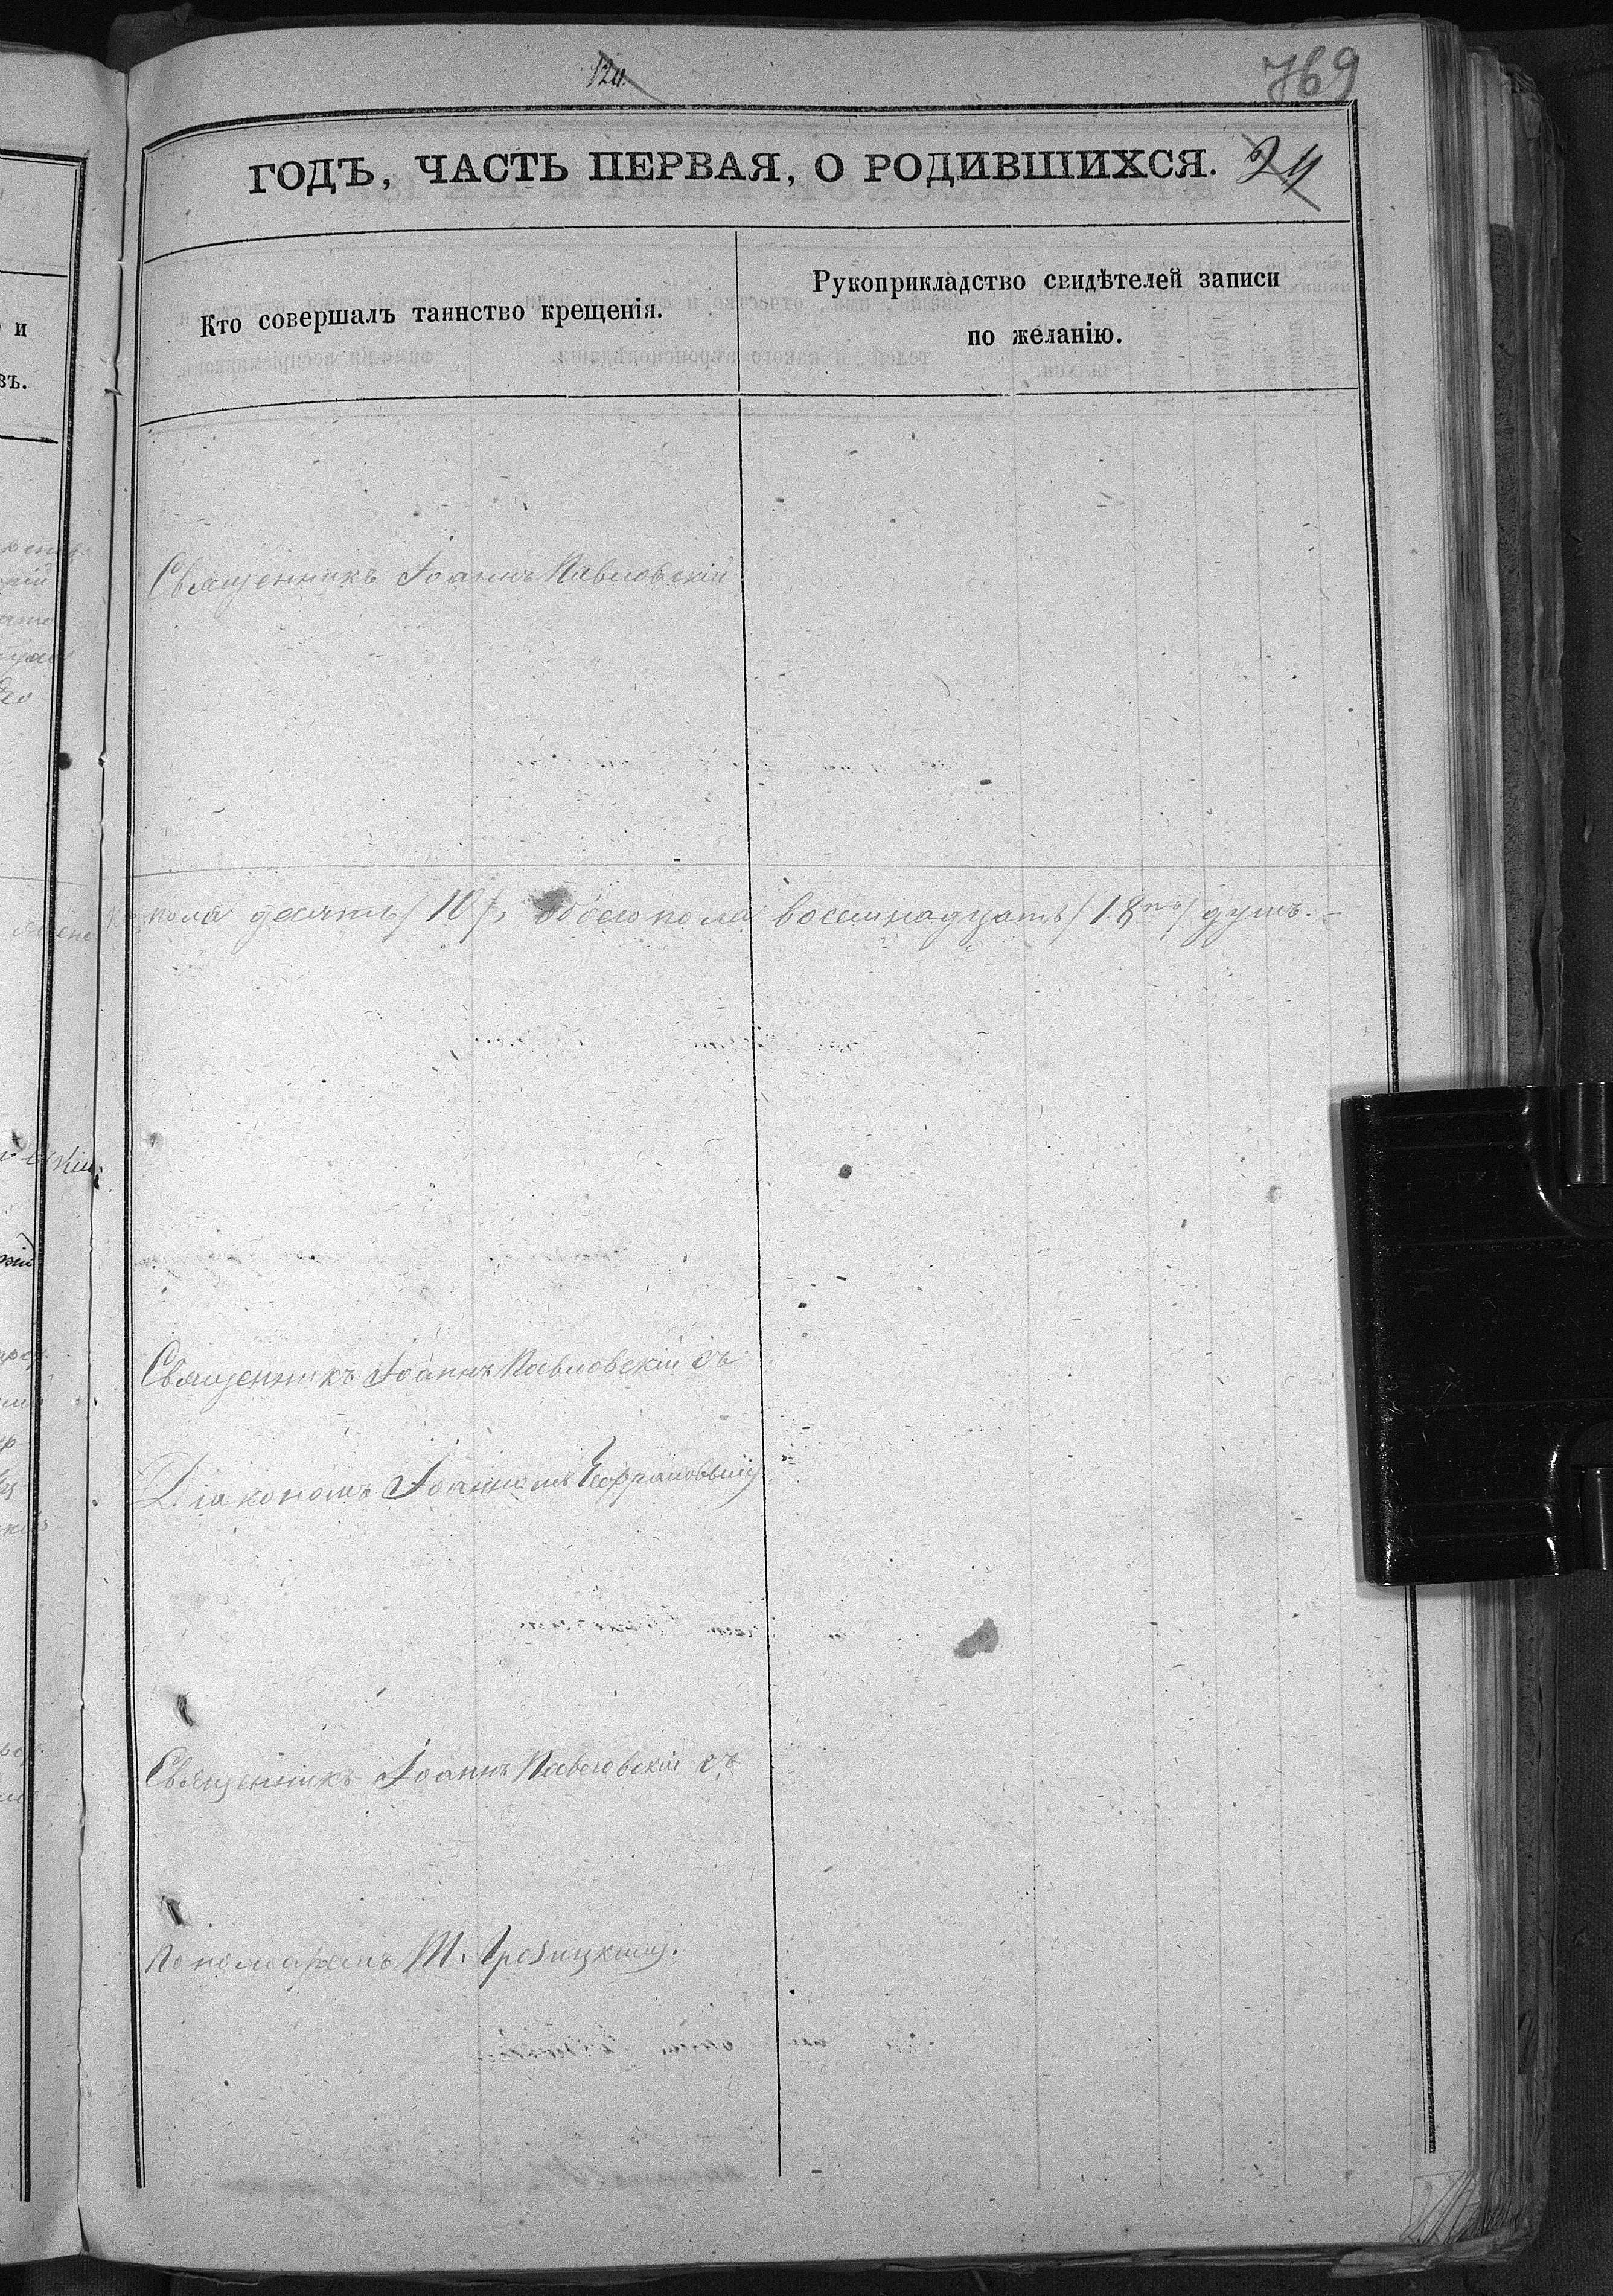 120.
769
ГОДЪ, ЧАСТЬ ПЕРВАЯ, О РОДИВШИХСЯ. 24
Кто совершалъ таинство крещенія.
Рукоприкладство свидѣтелей записи
по желанію.
и
въ.
Священникъ Іоаннъ Павловскій
пола десять /10/, обоего пола восемнадцать /18ть/ душъ.
Священникъ Іоаннъ Павловскій съ
Діакономъ Іоанномъ
Священникъ Іоаннъ Павловскій съ
Пономаремъ М. Грозицкимъ.